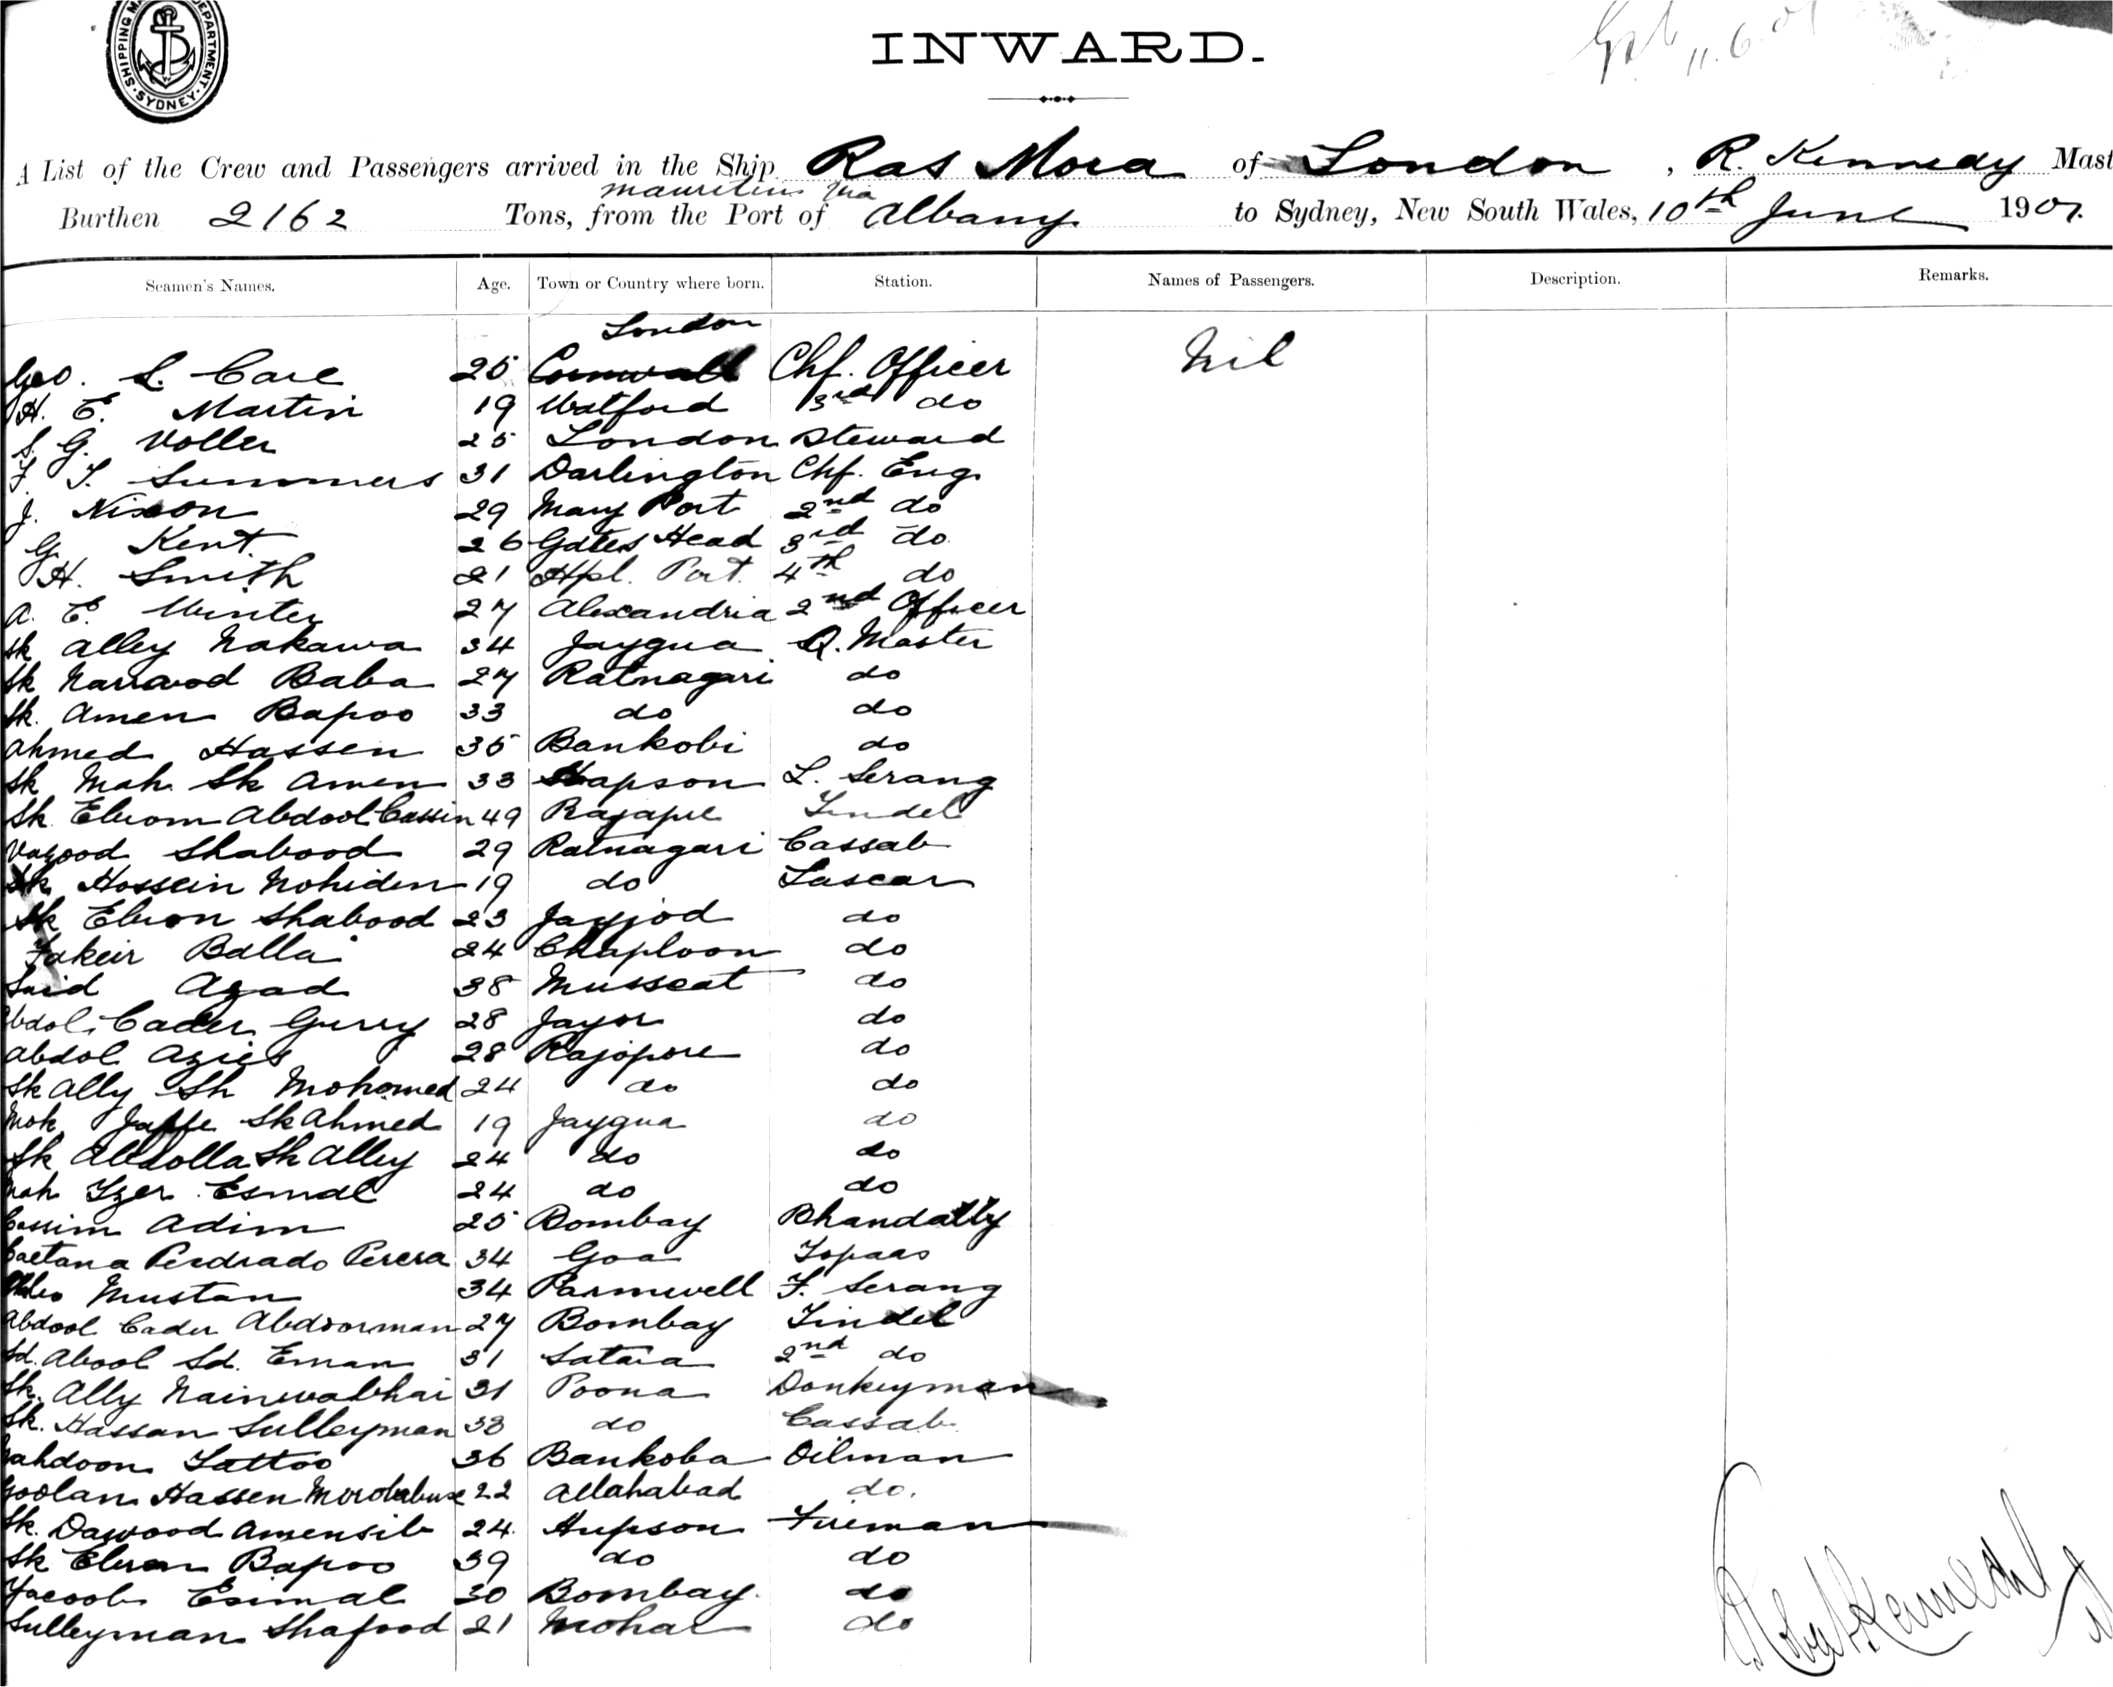 SHIPPING MA DEPARTMENT. SYDNEY.
11.6.07
INWARD.
A List of the Crew and Passengers arrived in the Ship Ras Mora of London, R. Kennedy Mast
Mauritius via
Burthen 2162 Tons, from the Port of Albany to Sydney, New South Wales, 10th June 1907.
Seamen's Names. Age. Town or Country where born. Station. Names of Passengers. Description. Remarks.
London
Geo. L. Care 25 Cornwall Chf. Officer Nil
H. E. Martin 19 Watford 3rd do
S. G. Voller 25 London Steward
F. T. Summers 31 Darlington Chf. Eng.
J. Nixon 29 Mary Port 2nd do
G. Kent 26 Gates Head 3rd do
H. Smith 21 Hpl. Port. 4th do
A. E. Winter 27 Alexandria 2nd Officer
Sk Alley Nakawa 34 Jaygua Q. Master
Sk Narravod Baba 27 Ratnagari do
Sk. Amen Bapoo 33 do do
Ahmed Hassen 35 Bankobi do
Sk Moh Sk Amen 33 Hapson L. Serang
Sk Ebrom Abdool Cassin 49 Rajapre Tindel
Shabood 29 Ratnagari Cassab
Sk Hossein Mohiden 19 do Lascar
Sk Ebron Shabood 23 Jayjod do
Fakeir Balla 24 Chaploon do
Said Azad 38 Musscat do
Abdol Cader Gurry 28 Jayor do
Abdol Azies 28 Rajopore do
Sk Ally Sh Mohomed 24 do do
Moh Jaffe Sk Ahmed 19 Jaygua do
Sk Abdolla Sk Alley 24 do do
Moh Izer Esmal 24 do do
Cassim Adim 25 Bombay Bhandally
Caetana Pedrado Perera 34 Goa Topaas
Mustan 34 Parmwell F. Serang
Abdool Cader Abdoorman 27 Bombay Tindel
Sd. Abool Sd. Eman 31 Satara 2nd do
Sk. Ally Nainwabhai 31 Poona Donkeyman
Sk. Hassan Sulleyman 33 do Cassab
Tattoo 36 Bankoba Oilman
Goolam Hassen 22 Allahabad do.
Sk. Dawood Amensib 24 Hupson Fireman
Sk Ebram Bapoo 39 do do
Yacoob Esimal 30 Bombay do
Sulleyman Shafood 21 Mohar do
Robert Kennedy